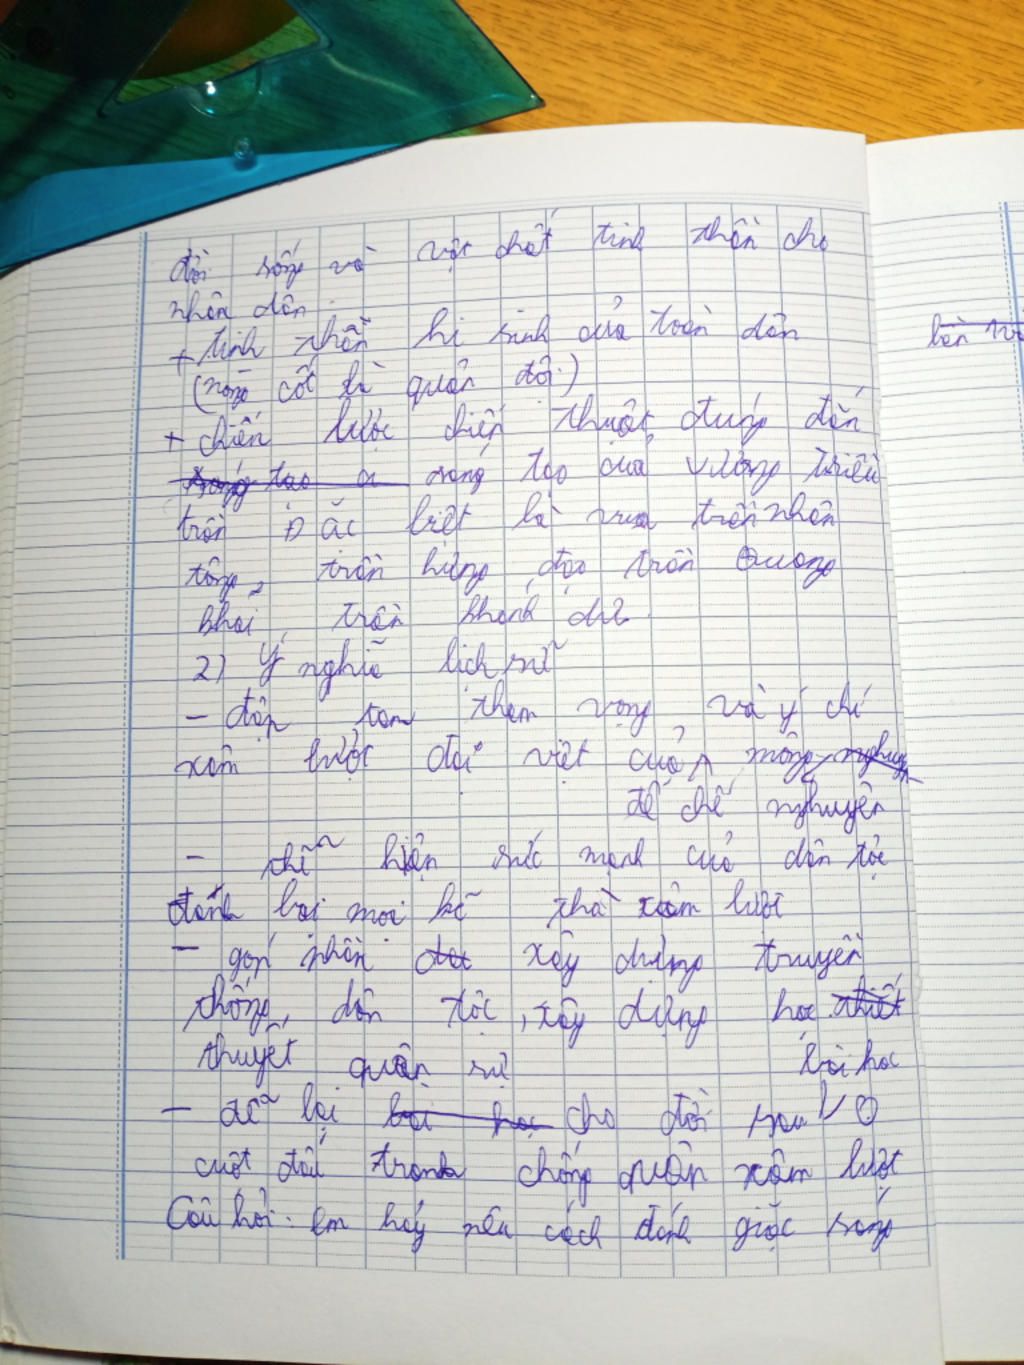 đời sống và vật chất tinh thần cho
nhân dân.
+ tinh thần hi sinh của toàn dân
(nòng cốt là quân đội)
+ chiến lược chiến thuật đúng đắn
sáng tạo của vương triều
trần Đặc biệt là vua trần nhân
tông, trần hưng đạo trần Quang
khải, trần khánh dư.
2) Ý nghĩa lịch sử
- đập tan tham vọng và ý chí
xâm lược đại việt của mông
đế chế nghuyên
- thể hiện sức mạnh của dân tộc
đánh bại mọi kẻ thù xâm lược
- góp phần xây dựng truyền
thống dân tộc, xây dựng học
thuyết quân sự
bài học
- để lại cho đời sau
cuột đấu tranh chống quân xâm lượt
Câu hỏi: em hãy nêu cách đánh giặc sáng
bản